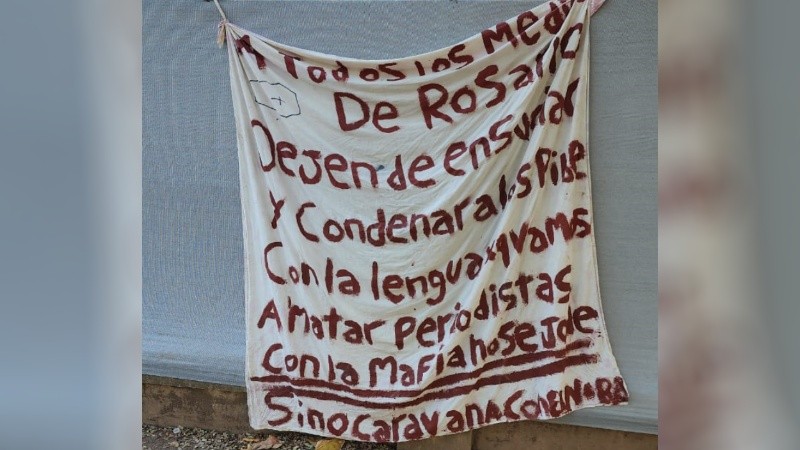 A Todos Los Medi
De Rosario
Dejen de ensuciar
Y Condenar a los Pibe
Con la lengua xq vamos
A Matar Periodistas
Con la Mafia no se Jode
Sino Caravana Con